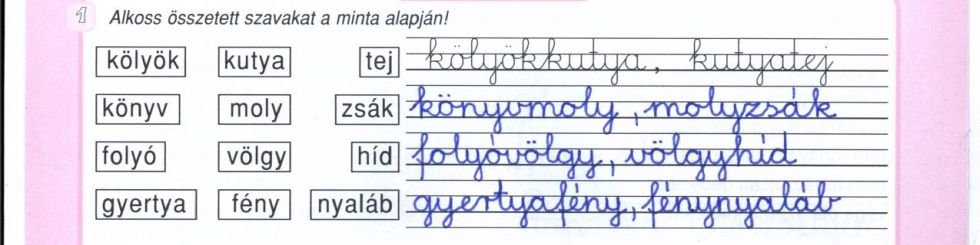 1 Alkoss összetett szavakat a minta alapján!
kölyök kutya tej kölyökkutya, kutyatej
könyv moly zsák könyvmoly, molyzsák
folyó völgy híd folyóvölgy, völgyhíd
gyertya fény nyaláb gyertyafény, fénynyaláb